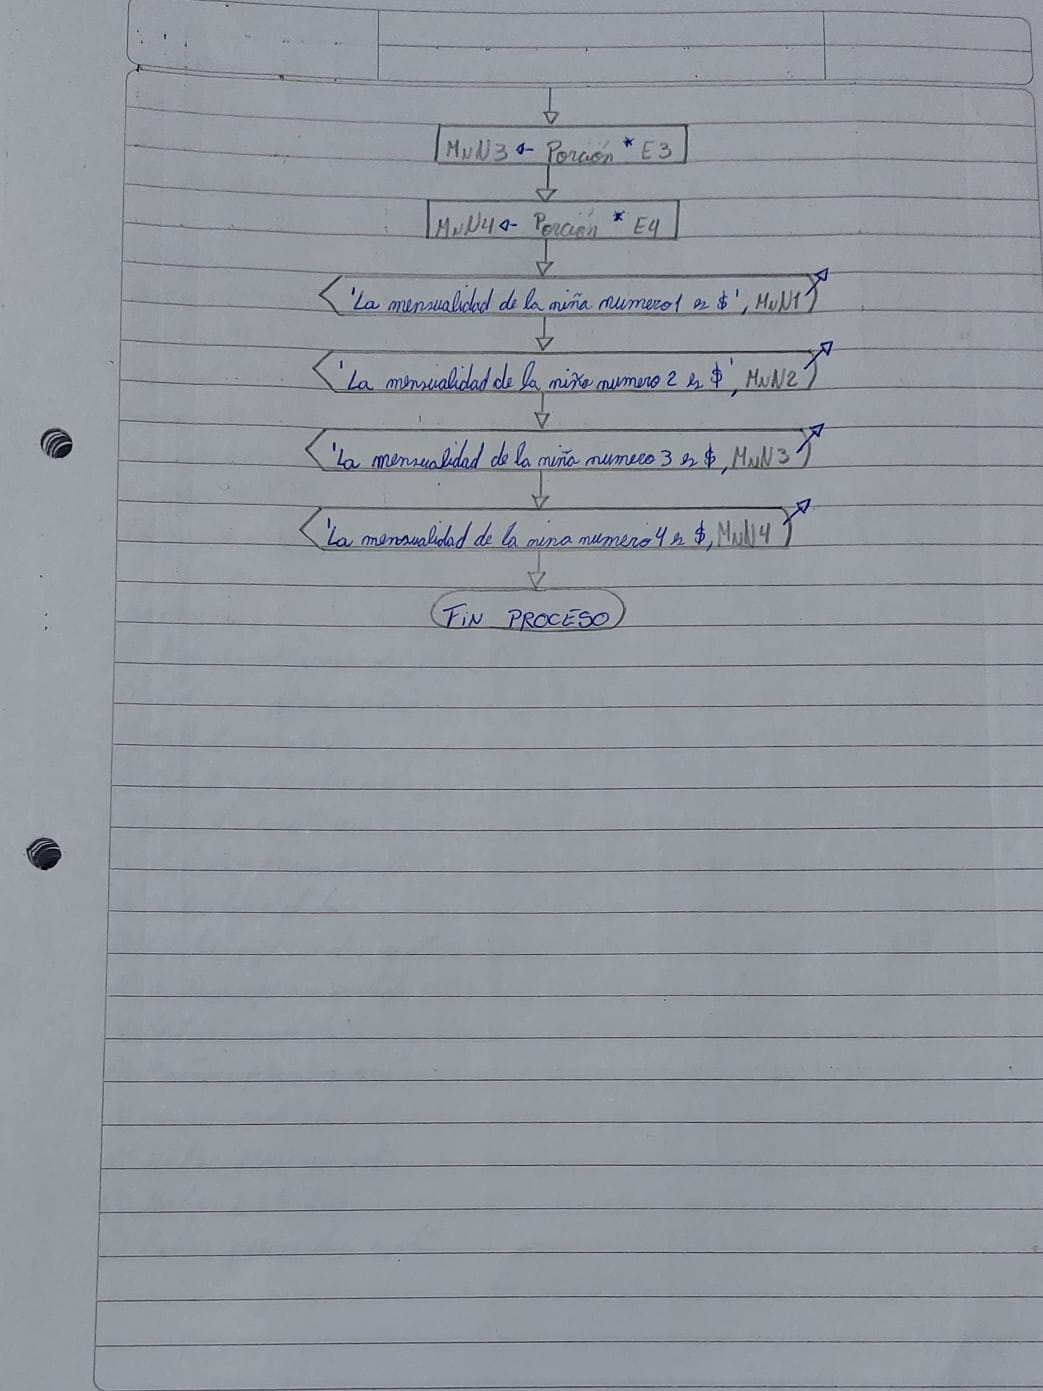 MNN3 ← Porción * E3
MNN4 ← Porción * E4
'La mensualidad de la niña numero 1 es $', MNN1
'La mensualidad de la niña numero 2 es $', MNN2
'La mensualidad de la niña numero 3 es $, MNN3
'La mensualidad de la nina numero 4 es $, MNN4
FiN PROCESO